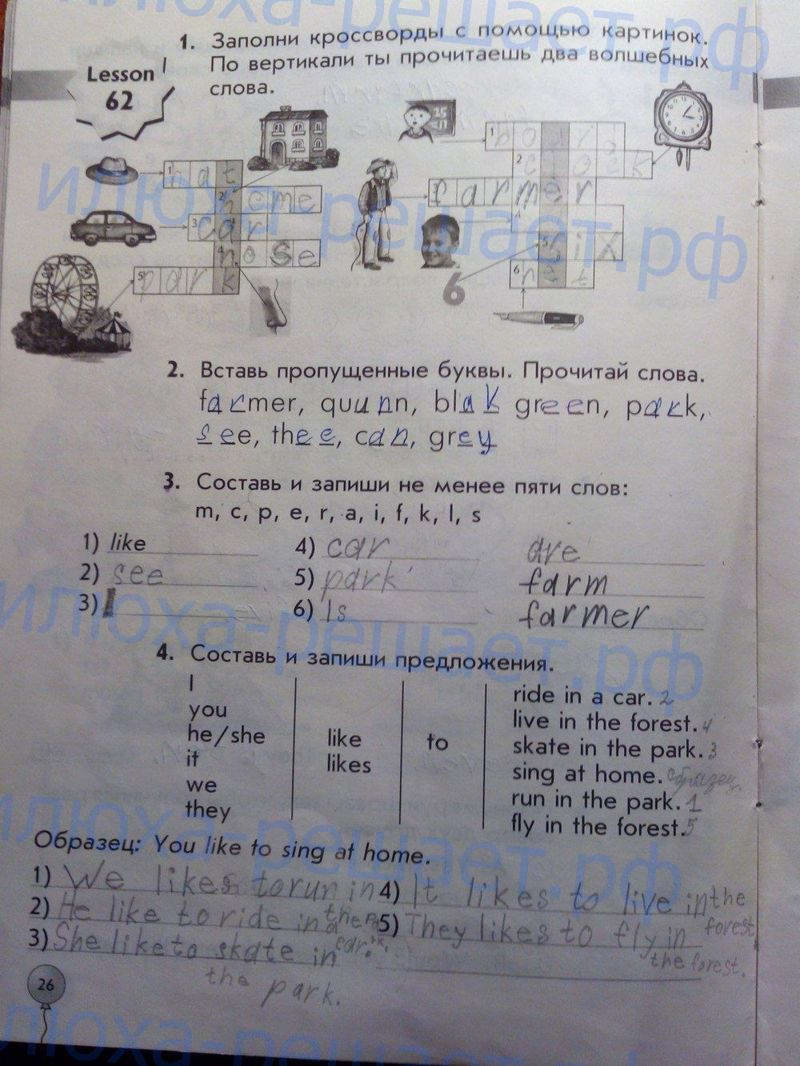 1. Заполни кроссворды с помощью картинок.
По вертикали ты прочитаешь два волшебных
слова.
Lesson
62
1 hat
2 home
3 car
4 nose
5 park
1
2 clock
farmer
5 six
6
6
2. Вставь пропущенные буквы. Прочитай слова.
farmer, quunn, blak green, park,
see, thee, can, grey
3. Составь и запиши не менее пяти слов:
m, c, p, e, r, a, i, f, k, l, s
1) like 4) car are
2) see 5) park farm
3) I 6) Is farmer
4. Составь и запиши предложения.
I
you
he/she
it
we
they
like
likes
to
ride in a car. 2
live in the forest. 4
skate in the park. 3
sing at home. образец.
run in the park. 1
fly in the forest. 5
Образец: You like to sing at home.
1) We likes to run in the
2) He like to ride in a car.
3) She like to skate in
the park.
4) It likes to live in the
forest
5) They likes to fly in
the forest.
26
илюха-решает.рф
илюха-решает.рф
илюха-решает.рф
илюха-решает.рф
илюха-решает.рф